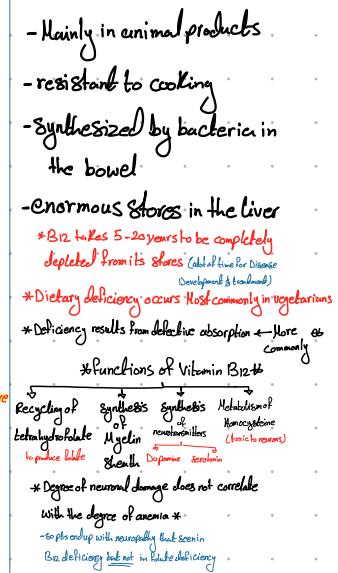 - Mainly in animal products
- resistant to cooking
- synthesized by bacteria in
the bowel
- enormous stores in the liver
* B12 takes 5-20 years to be completely
depleted from its stores (alot of time for Disease
Development & treatment)
* Dietary deficiency occurs Most commonly in vegetarians
* Deficiency results from defective absorption ← More
commonly
* Functions of Vitamin B12 *
Recycling of
tetrahydrofolate
to produce folate
Synthesis
of
Myelin
Sheath
Synthesis
of
neurotransmitters
Dopamine serotonin
Metabolism of
Homocysteine
(toxic to neurons)
* Degree of neuronal damage does not correlate
with the degree of anemia *
- so pts end up with neuropathy that seen in
B12 deficiency but not in folate deficiency